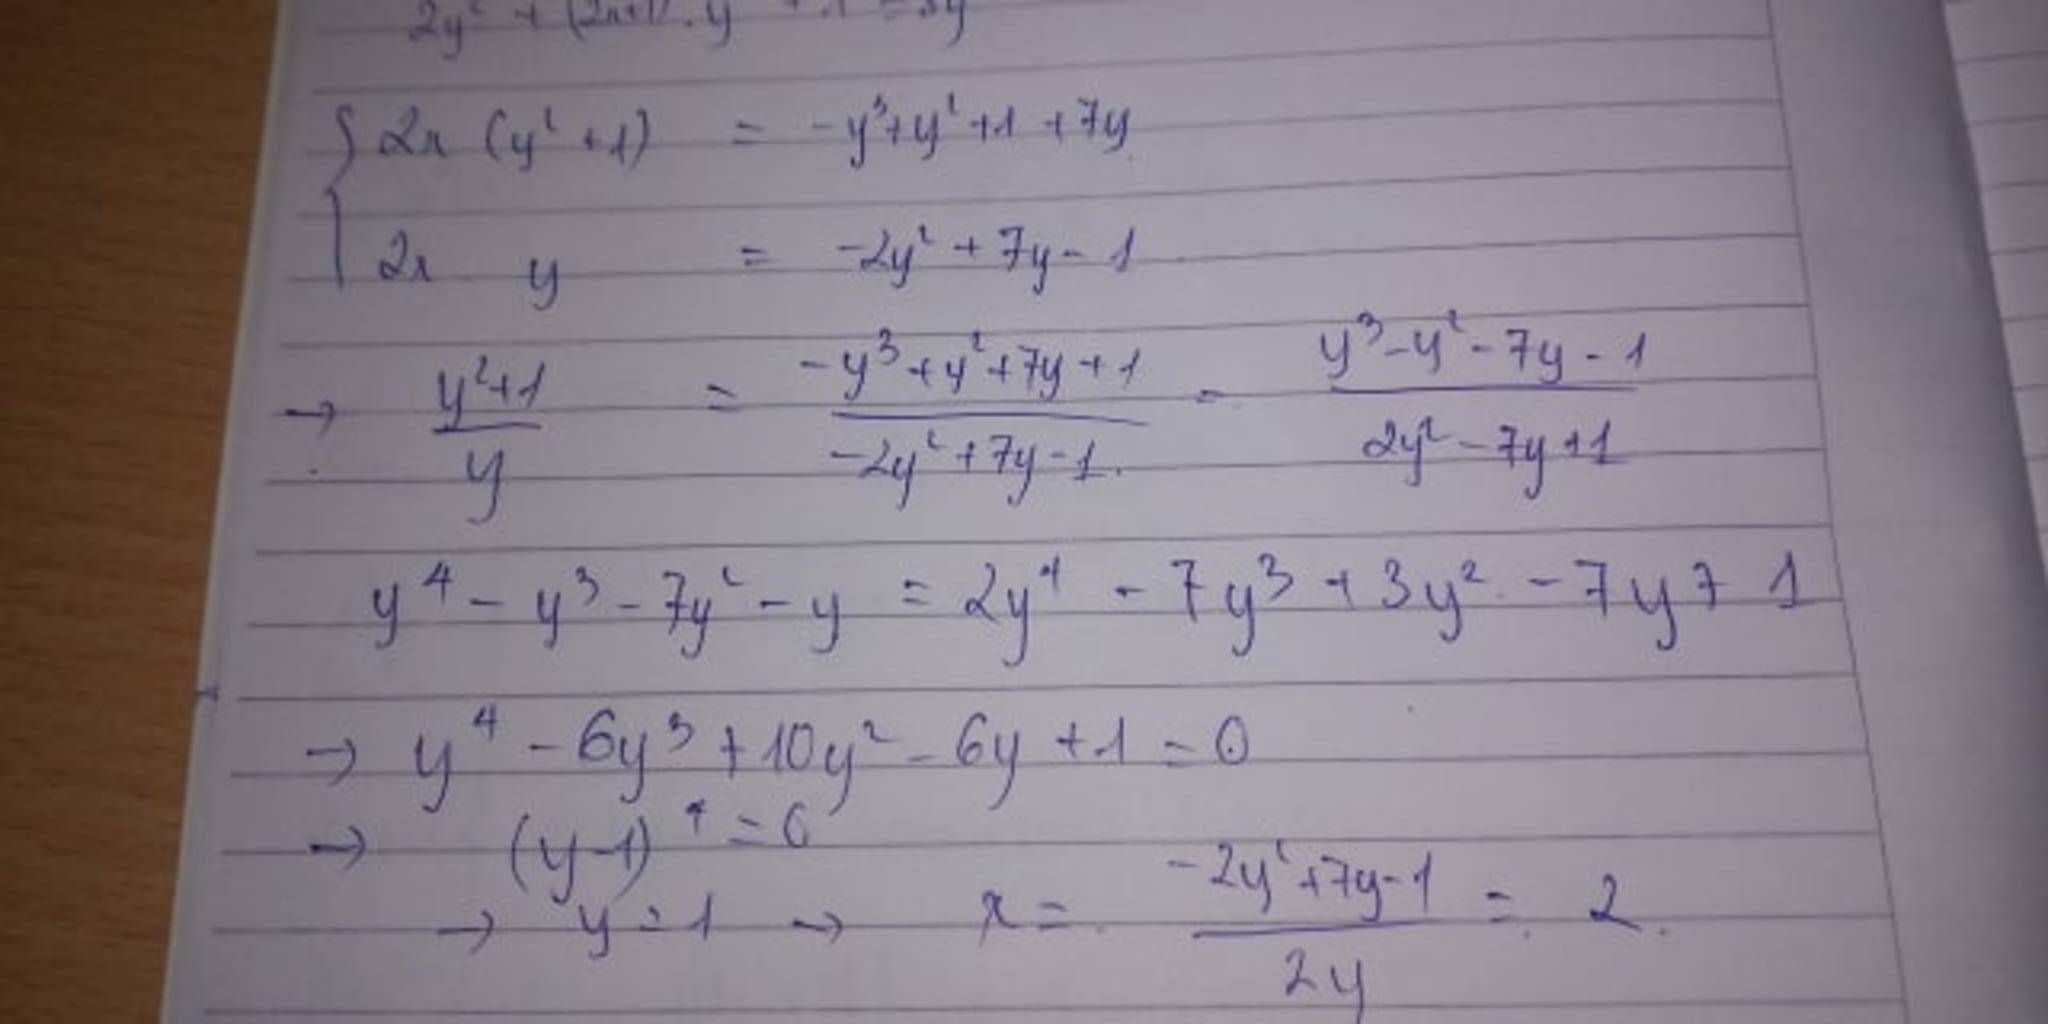 2y² + (2x+1).y + 1 = 8y
{ 2x (y² + 1) = -y³+y²+1 +7y
2x y = -2y² + 7y - 1
→ (y²+1)/y = (-y³+y²+7y+1)/(-2y²+7y-1) = (y³-y²-7y-1)/(2y²-7y+1)
y⁴ - y³ - 7y² - y = 2y⁴ - 7y³ + 3y² - 7y + 1
→ y⁴ - 6y³ + 10y² - 6y + 1 = 0
→ (y-1)⁴ = 0
→ y = 1 → x = (-2y²+7y-1)/2y = 2.